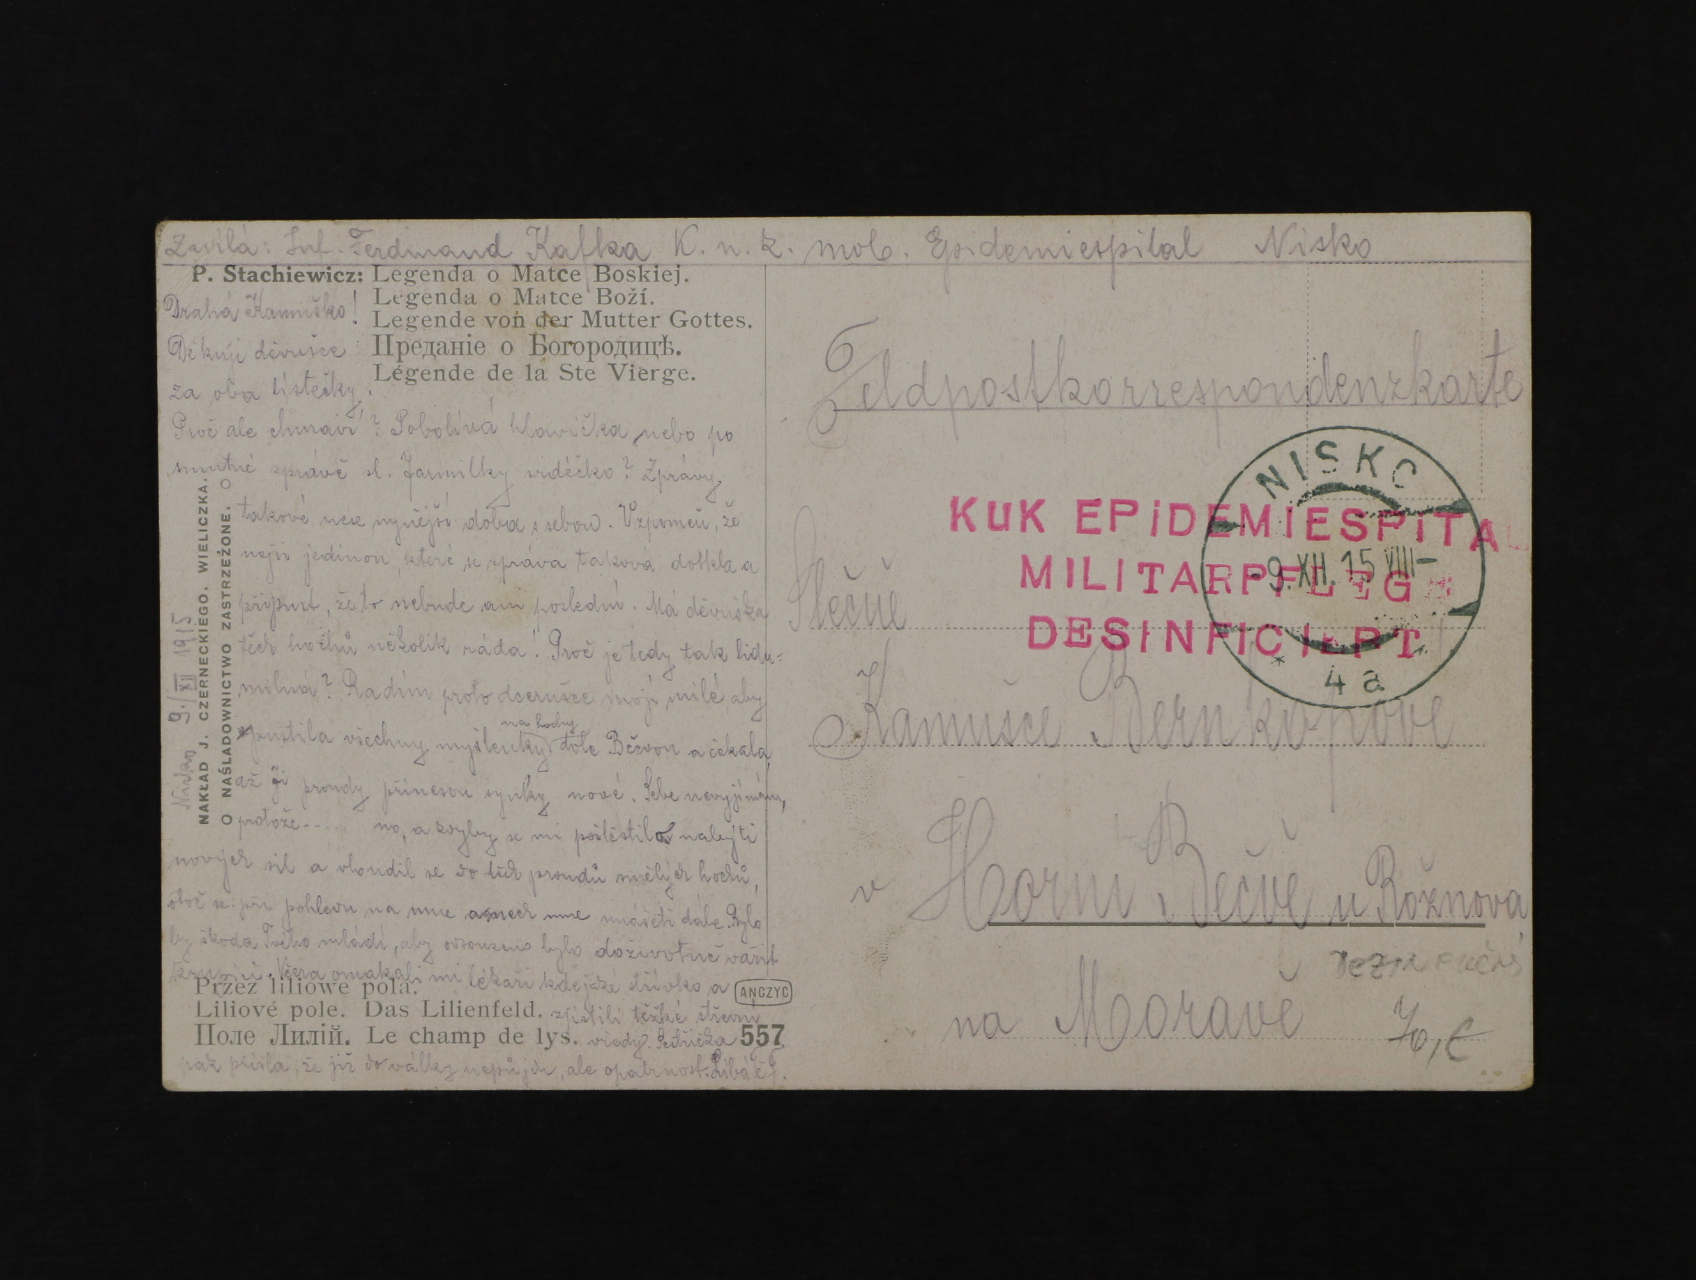 Inf. Ferdinand Kafka K. n. k. mob. Epidemiespital Nisko
P. Stachiewicz: Legenda o Matce Boskiej.
Legenda o Matce Boží.
Legende von der Mutter Gottes.
Преданіе о Богородицѣ.
Légende de la Ste Vierge.
Drahá Kamuško!
Děkuji děvušce
za oba lístečky.
Proč ale chmaví? Pobolívá hlavička nebo po
smutné zprávě sl. Jarmilky srdéčko? Zprávy
takové nese nynější doba s sebou. Vzpomeň, že
nejsi jedinou, které se zpráva taková dotkla a
připusť, že to nebude ani poslední. Má děvuška
těch hochů několik ráda! Proč je tedy tak
milná? Radím proto dcerušce mojí milé, aby
pustila všechny myšlenky na hochy dole Bečvou a čekala,
až jí proudy přinesou synky nové. Sebe nevyjímám,
protože..... no, a kdyby se mi poštěstilo nalejti
nových sil a vloudil se do těch proudů smělých hochů,
otoč se při pohledu na mne a nech mne unášeti dále. Bylo
by škoda Tvého mládí, aby odsouzeno bylo doživotně vařit
Včera omakali mi lékaři kdejaké střívko a
zjistili těžké střevní
vředy. Sestřička
pak přišla, že již do války nepůjdu, ale opatrnost. Líbá Tě F.
Nisko 9./XII 1915
NAKŁAD J. CZERNECKIEGO. WIELICZKA.
O NAŚLADOWNICTWO ZASTRZEŻONE. O
Przez liliowe pola.
Liliové pole. Das Lilienfeld.
Поле Лилій. Le champ de lys.
ANCZYC
557
Feldpostkorrespondenzkarte
NISKO
-9.XII.15 VIII-
* 4a *
KUK EPIDEMIESPITAL
MILITARPFLEGE
DESINFICIERT
Slečně
Kamušce Bernkopově
v Horní Bečvě u Rožnova
na Moravě
70,-